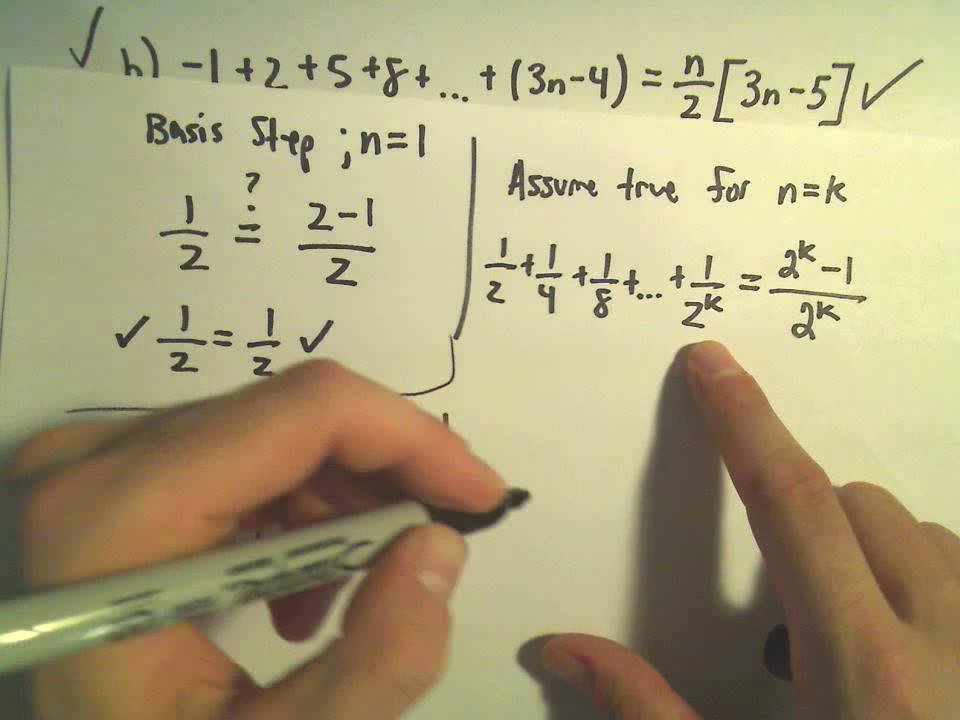 ✓ b) -1 + 2 + 5 + 8 + ... + (3n-4) = n/2 [3n-5] ✓
Basis Step ; n=1
1/2 ≟ (2-1)/2
✓ 1/2 = 1/2 ✓
Assume true for n=k
1/2 + 1/4 + 1/8 + ... + 1/2^k = (2^k - 1)/2^k